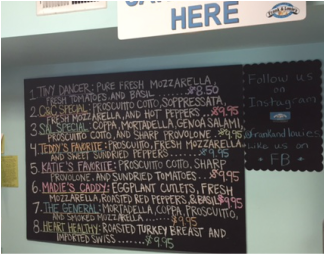 HERE
1. TINY DANCER: PURE FRESH MOZZARELLA,
FRESH TOMATOES AND BASIL ........ $8.50
2. SPECIAL: PROSCUITTO COTTO, SOPPRESSATA,
FRESH MOZZARELLA, AND HOT PEPPERS ... $9.95
3. SAL SPECIAL: COPPA, MORTADELLA, GENOA SALAMI,
PROSCUITTO COTTO, AND SHARP PROVOLONE ... $9.95
4. TEDDY'S FAVORITE: PROSCUITTO, FRESH MOZZARELLA
AND SWEET SUNDRIED PEPPERS ...... $9.95
5. KATIE'S FAVORITE: PROSCUITTO COTTO, SHARP
PROVOLONE, AND SUNDRIED TOMATOES... $9.95
6. MADIE'S CADDY: EGGPLANT CUTLETS, FRESH
MOZZARELLA, ROASTED RED PEPPERS, & BASIL $9.95
7. THE GENERAL: MORTADELLA, COPPA, PROSCUITTO,
AND SMOKED MOZZARELLA........ $9.95
8. HEART HEALTHY: ROASTED TURKEY BREAST AND
IMPORTED SWISS ....... $9.95
Follow us
on
Instagram
Like us on
FB